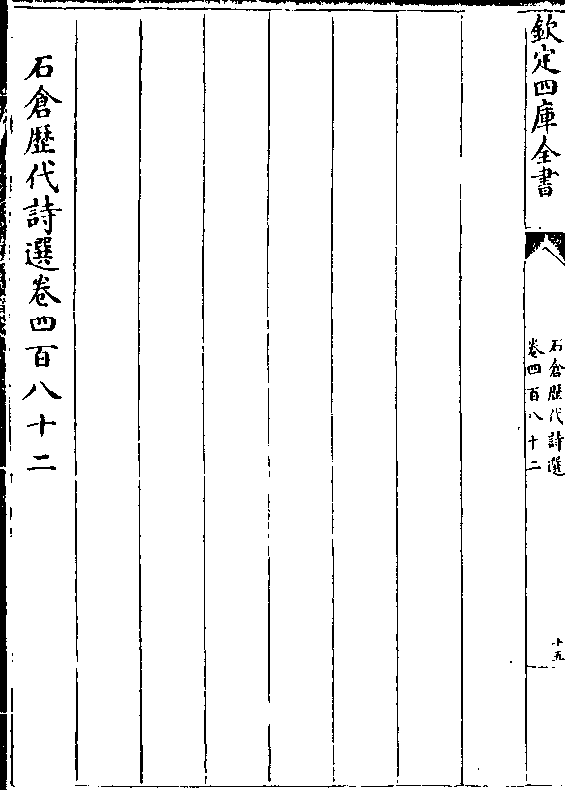 欽定四庫全書
石倉歷代詩選
卷四百八十二
十五
石倉歷代詩選卷四百八十二